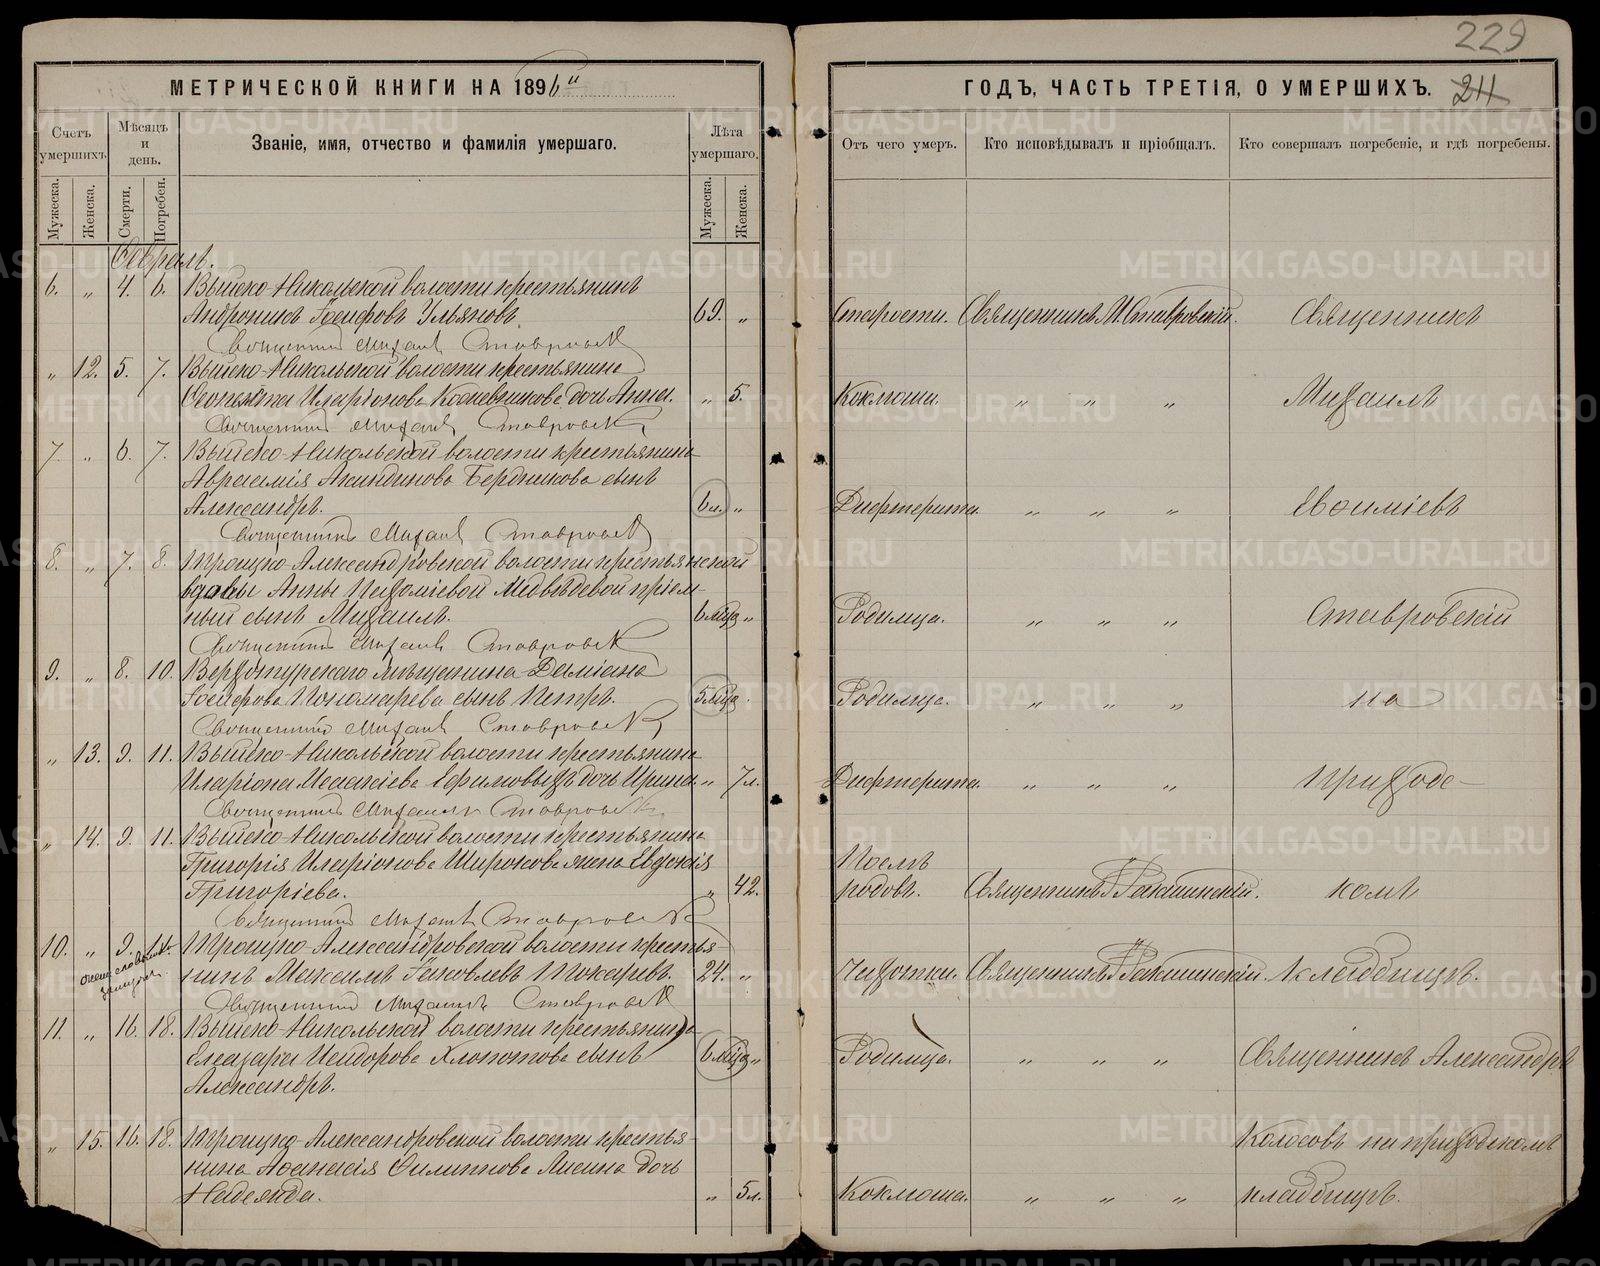 229
МЕТРИЧЕСКОЙ КНИГИ НА 1896й
ГОДЪ, ЧАСТЬ ТРЕТІЯ, О УМЕРШИХЪ.
211
Счетъ умершихъ.
Мѣсяцъ и день.
Званіе, имя, отчество и фамилія умершаго.
Лѣта умершаго.
Отъ чего умеръ.
Кто исповѣдывалъ и пріобщалъ.
Кто совершалъ погребеніе, и гдѣ погребены.
Мужеска.
Женска.
Смерти.
Погребен.
Мужеска.
Женска.
Февраль.
6. " 4. 6. Выйско-Никольской волости крестьянинъ
Андроникъ Іосифовъ Ульяновъ. 69. " Старости. Священникъ М. Ставровскій. Священникъ
Священникъ Михаилъ Ставровскій
" 12. 5. 7. Выйско-Никольской волости крестьянина
Иларіонова Кожевникова дочь Анна. " 5. Коклюша. " " " Михаилъ
Священникъ Михаилъ Ставровскій
7. " 6. 7. Выйско-Никольской волости крестьянина
Авраамія Акиндинова Бердникова сынъ
Александръ. 6 л. " Дифтерита. " " " Евфиміевъ
Священникъ Михаилъ Ставровскій
8. " 7. 8. Троицко-Александровской волости крестьянской
вдовы Анны Пахоміевой Медвѣдевой пріем-
ный сынъ Михаилъ. 6 мца " Родимца. " " " Ставровскій
Священникъ Михаилъ Ставровскій
9. " 8. 10. Верхотурскаго мѣщанина Даміана
Пономарева сынъ Петръ. 5 мца. Родимца. " " " на
Священникъ Михаилъ Ставровскій
" 13. 9. 11. Выйско-Никольской волости крестьянина
Иларіона Ефимовыхъ дочь Ирина. " 7 л. Дифтерита. " " " Приход-
Священникъ Михаилъ Ставровскій
" 14. 9. 11. Выйско-Никольской волости крестьянина
Григорія Иларіонова Широкова жена Евдокія Послѣ
Григоріева. " 42. родовъ. Священникъ скомъ
Священникъ Михаилъ Ставровскій
10. " 9. 14. Троицко-Александровской волости крестья-
нинъ Максимъ Яковлевъ Токаревъ. 24. " Чахотки. Священникъ кладбищѣ.
Священникъ Михаилъ Ставровскій
11. " 16. 18. Выйско-Никольской волости крестьянина
Елеазара Исидорова Хлопотова сынъ 6 мца " Родимца. " " " Священникъ Александръ
Александръ.
" 15. 16. 18. Троицко-Александровской волости крестья- Колосовъ на приходскомъ
нина Аѳанасія Филиппова Лисина дочь
Надежда. " 5 л. Коклюша. " " " кладбищѣ.